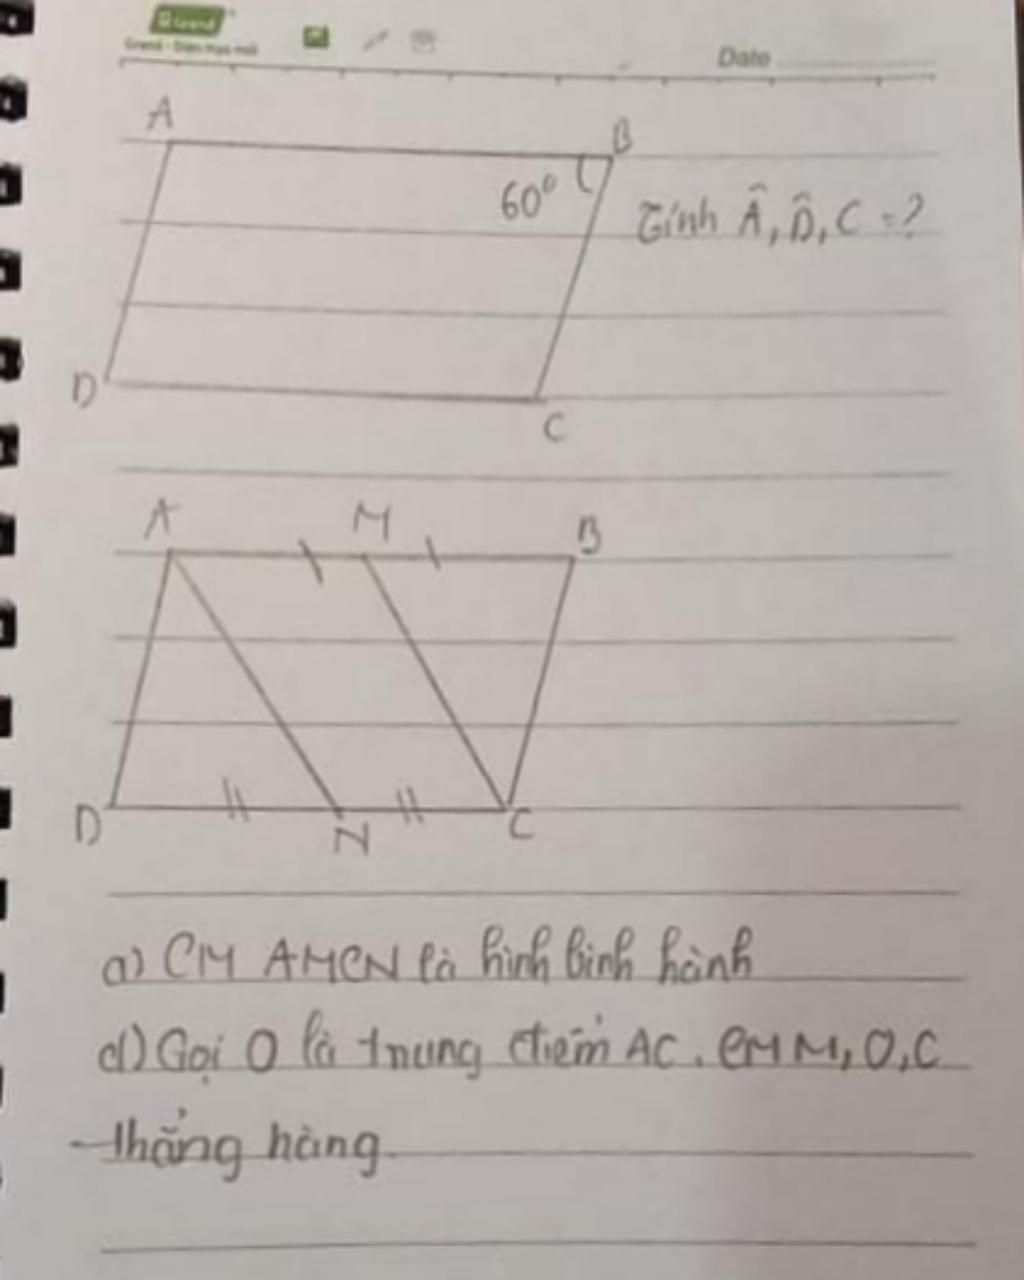 Grand
Date
A
B
60°
Tính Â, D̂, C = ?
D
C
A
M
B
D
N
C
a) CM AMCN là hình bình hành
d) Gọi O là trung điểm AC. CM M, O, C
thẳng hàng.